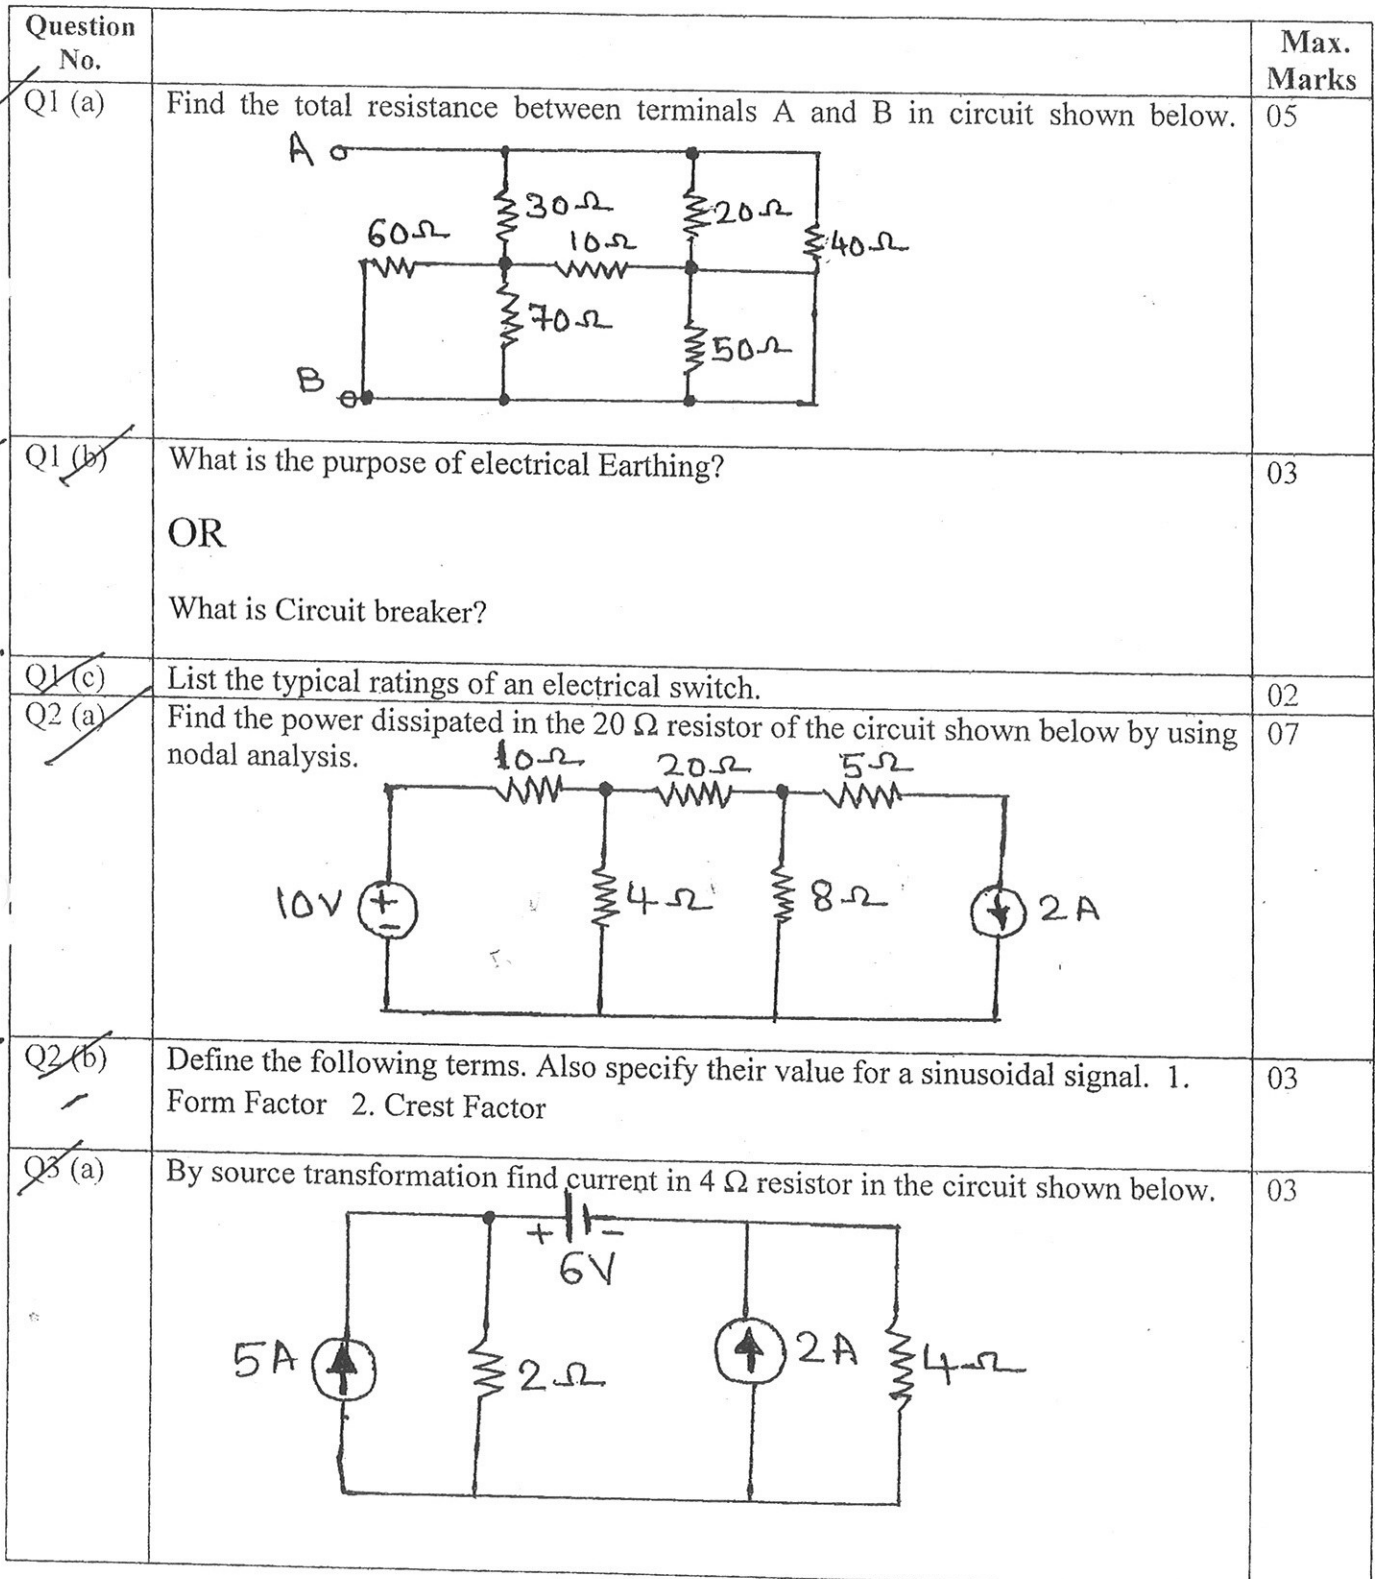 Question No.
Max. Marks
Q1 (a)
Find the total resistance between terminals A and B in circuit shown below.
05
A
30Ω
20Ω
60Ω
10Ω
40Ω
70Ω
50Ω
B
Q1 (b)
What is the purpose of electrical Earthing?
03
OR
What is Circuit breaker?
Q1 (c)
List the typical ratings of an electrical switch.
02
Q2 (a)
Find the power dissipated in the 20 Ω resistor of the circuit shown below by using
07
nodal analysis.
10Ω
20Ω
5Ω
10V
+
-
4Ω
8Ω
2A
Q2 (b)
Define the following terms. Also specify their value for a sinusoidal signal. 1.
03
Form Factor 2. Crest Factor
Q3 (a)
By source transformation find current in 4 Ω resistor in the circuit shown below.
03
+
-
6V
5A
2Ω
2A
4Ω